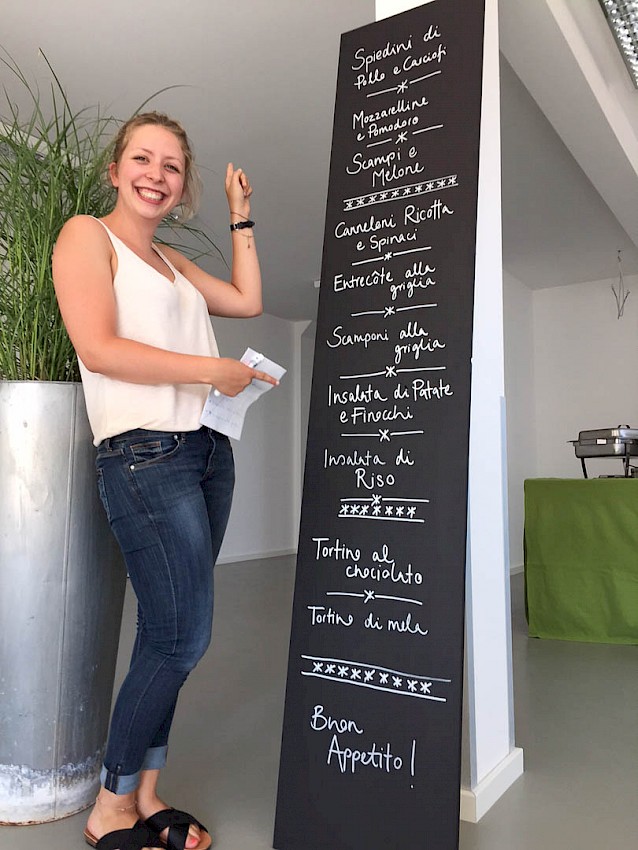 Spiedini di
Pollo e Carciofi
Mozzarelline
e Pomodoro
Scampi e
Melone
Canneloni Ricotta
e Spinaci
Entrecôte alla
griglia
Scamponi alla
griglia
Insalata di Patate
e Finocchi
Insalata di
Riso
Tortino al
chociolato
Tortino di mela
Buon
Appetito!